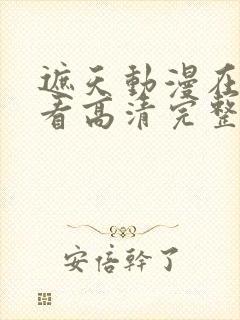 遮天動漫在
看高清完整
安倍幹了